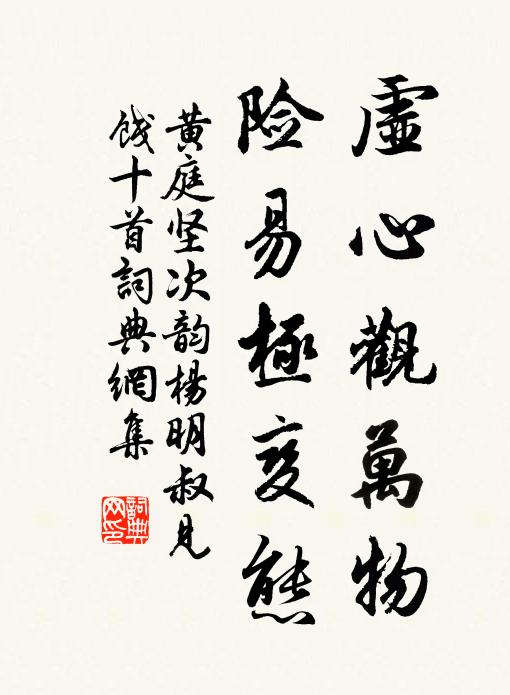 虛心觀萬物
险易極变態
黄庭坚次韵楊明叔见
餞十首詞典網集
詞典網印